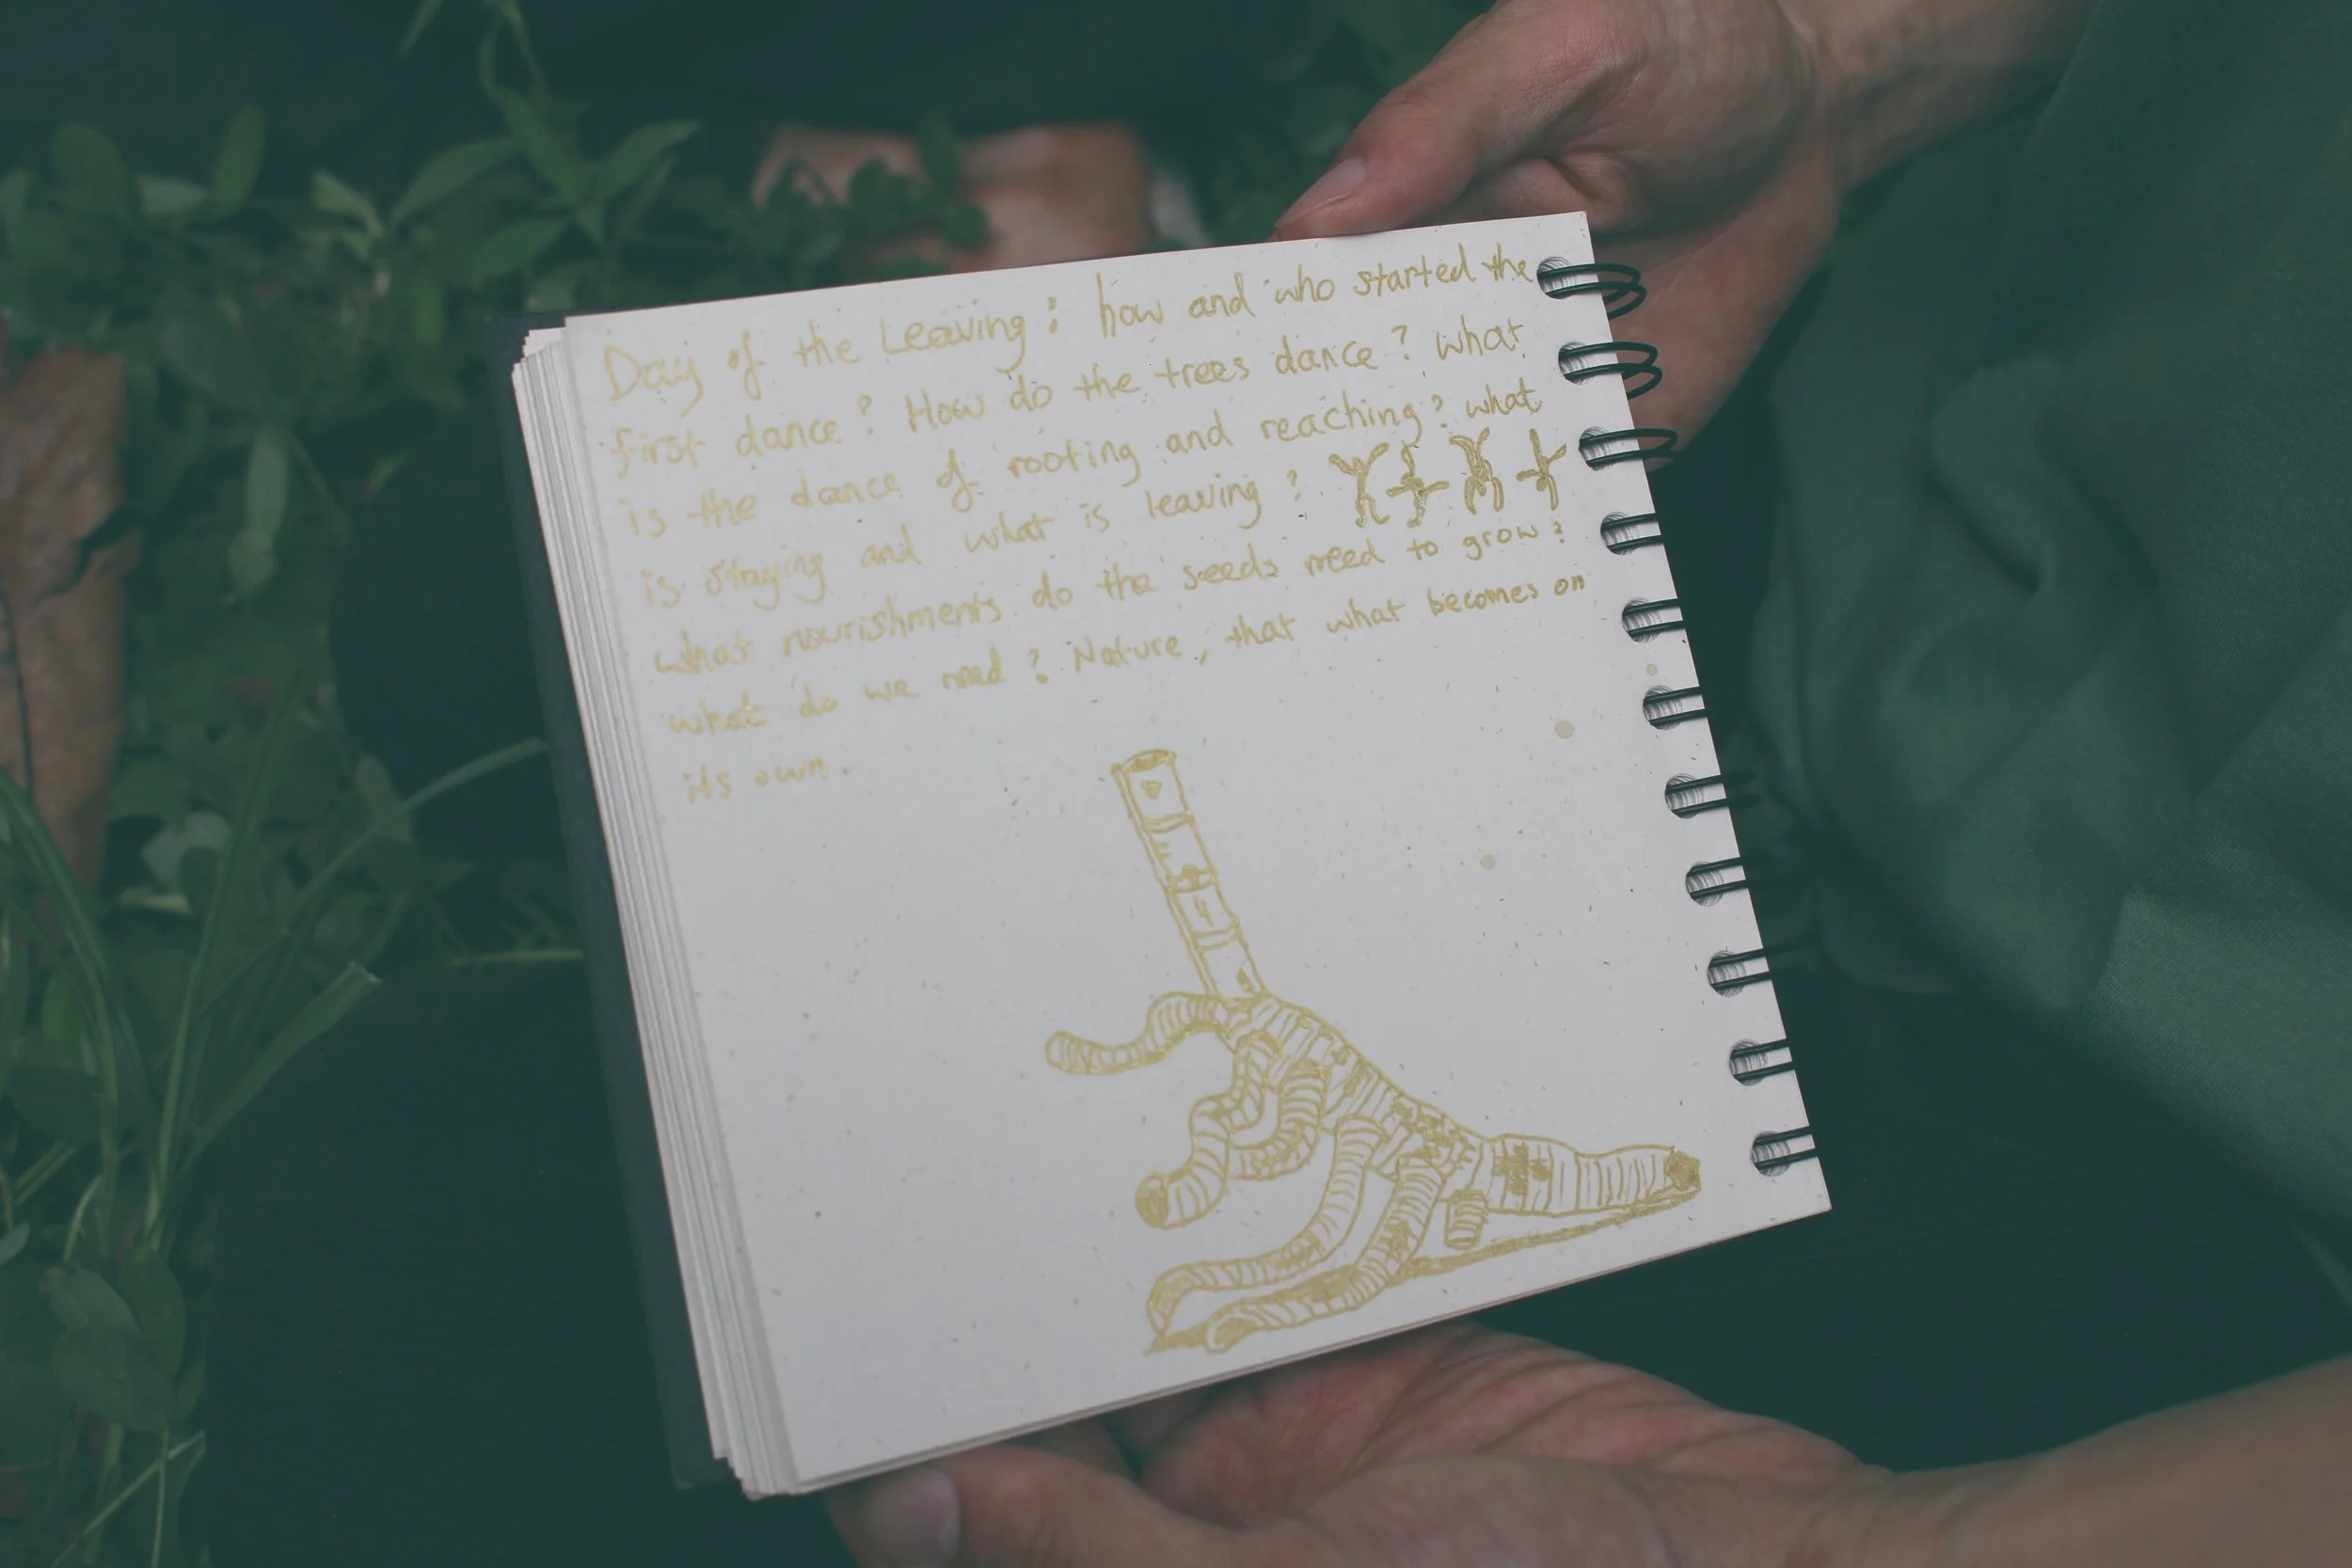 Day of the Leaving: how and who started the
first dance? How do the trees dance? What
is the dance of rooting and reaching? what
is staying and what is leaving?
what nourishments do the seeds need to grow?
what do we need? Nature, that what becomes on
its own.